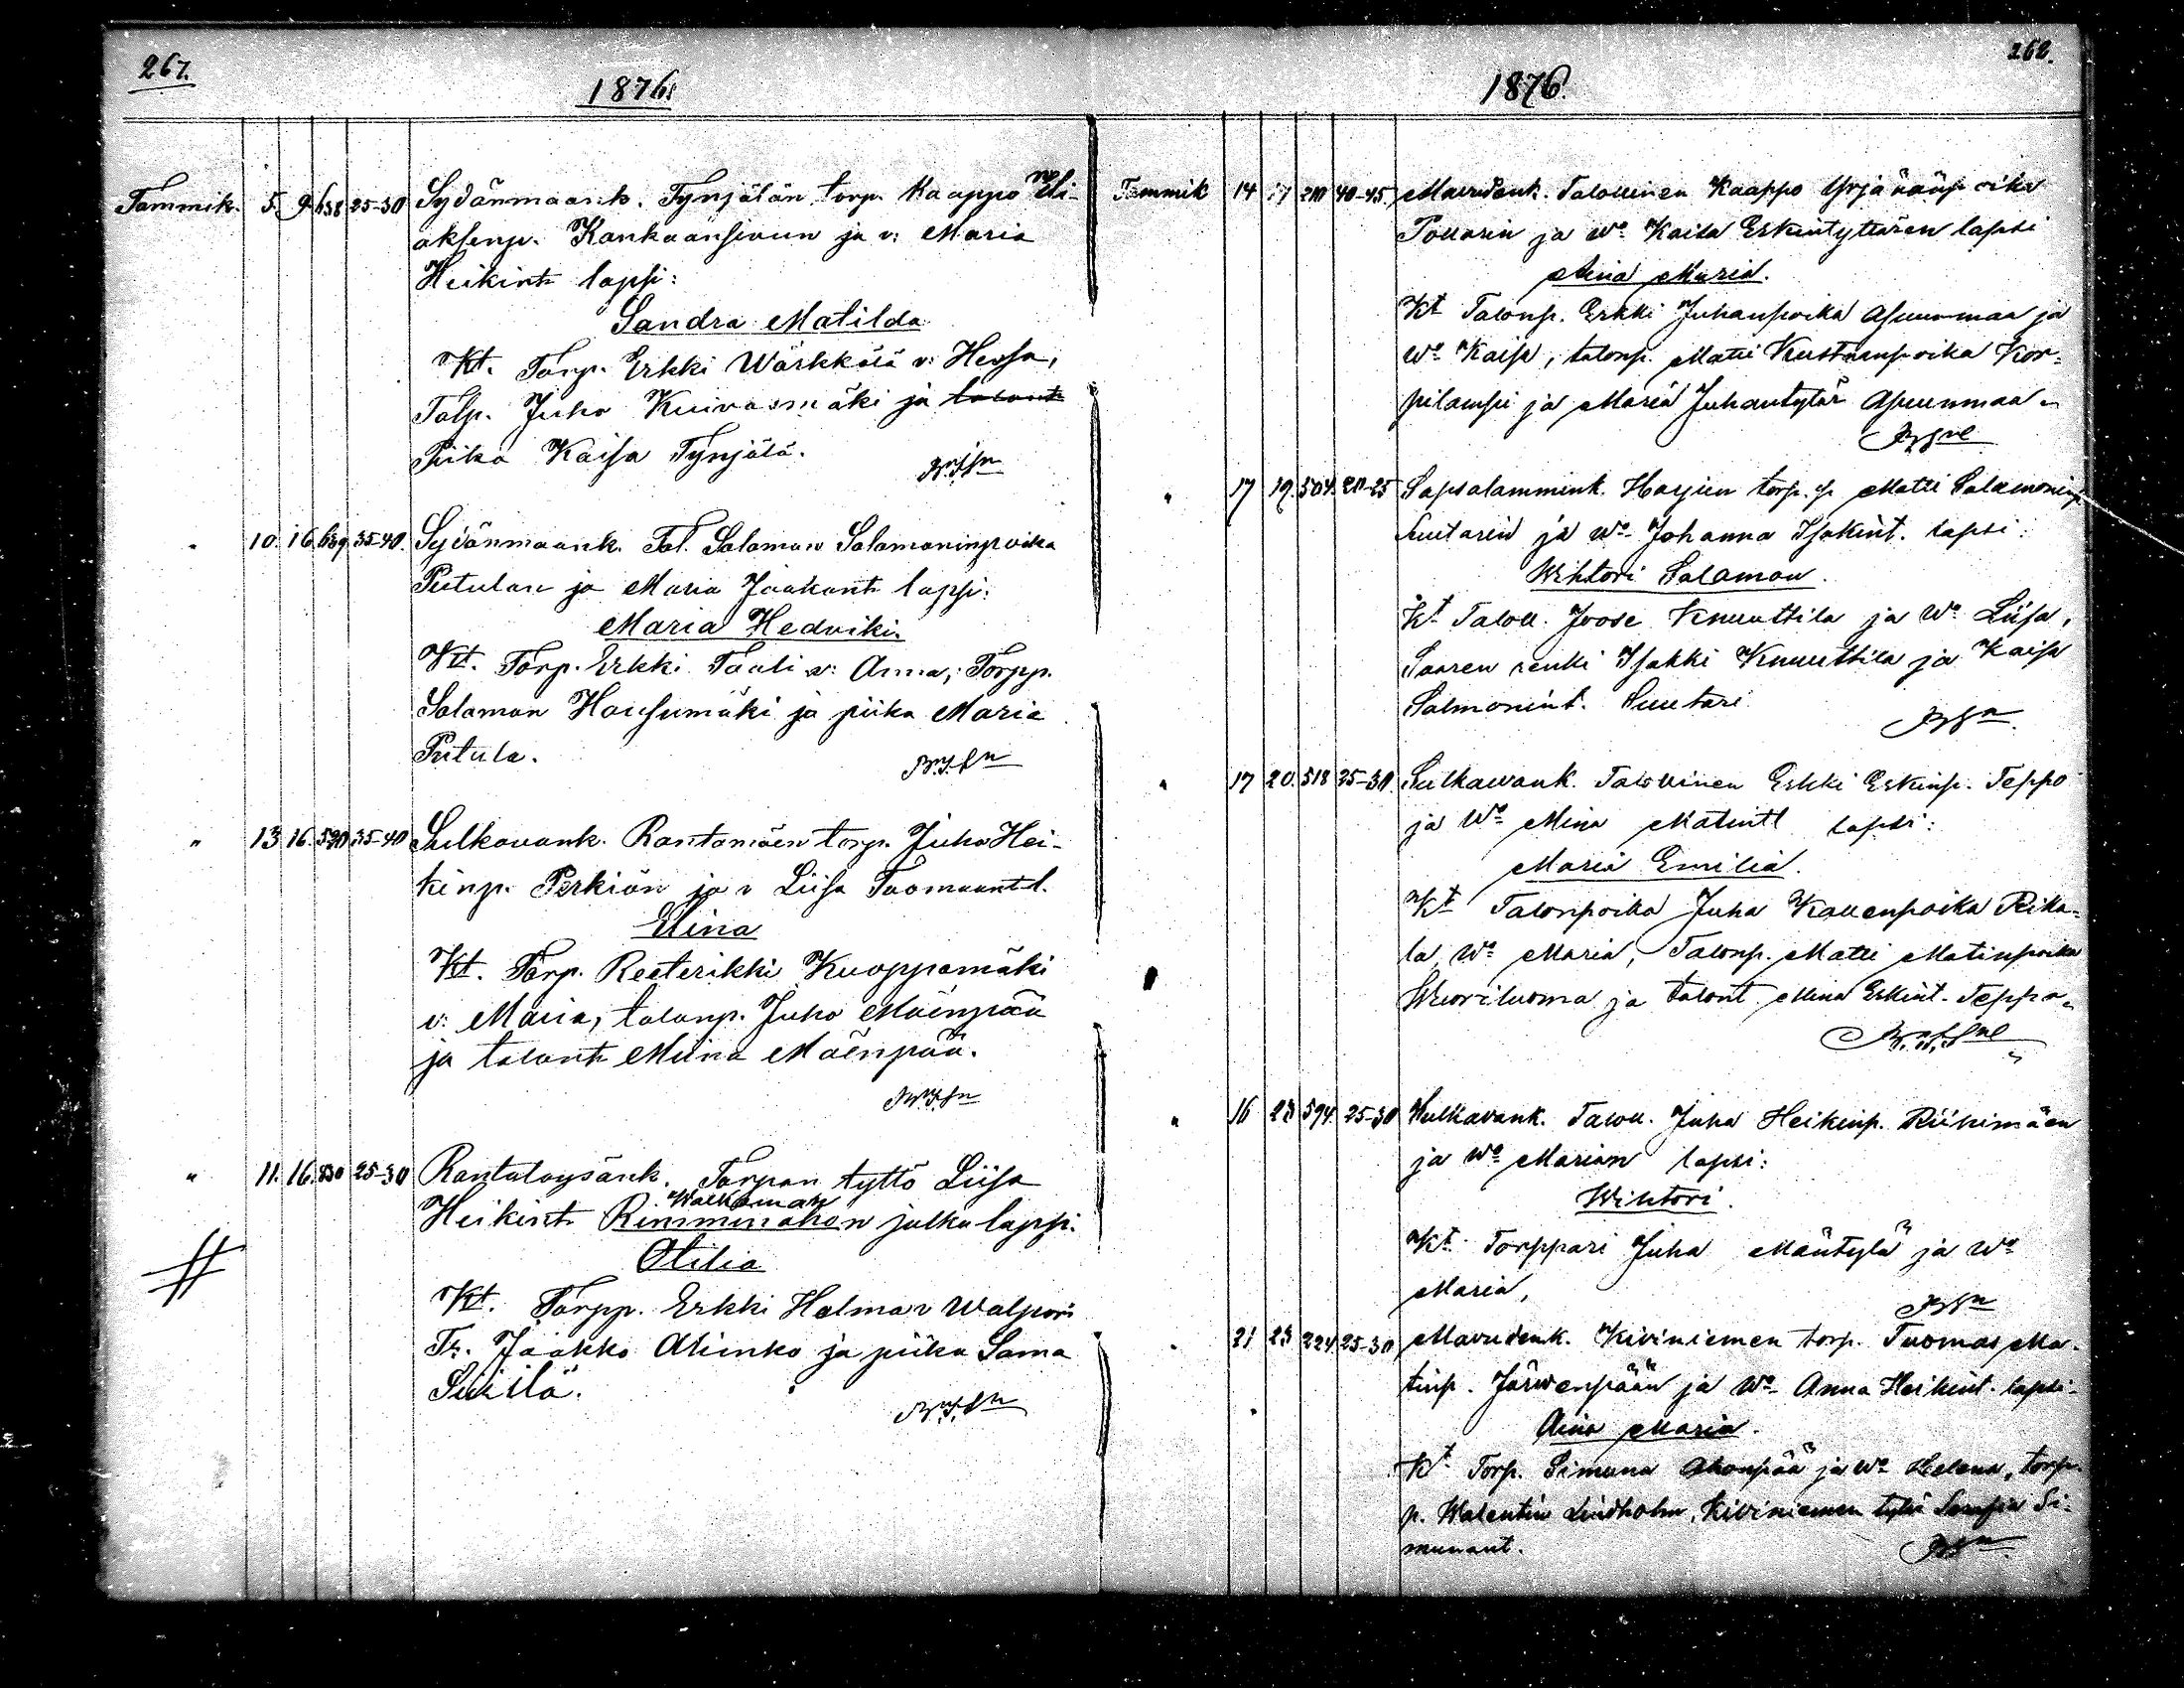 267.
1876.
Tammik. 5. 9. 638 25-30 Sydänmaank. Tynjälän torp. Kaappo Eli-
aksenp. Kankaansivun ja v: Maria
Heikint. lapsi:
Sandra Matilda
Kt. Torp. Erkki Wärkkälä v:
Talp. Juho Kuivasmäki ja talont
Piika Kaisa Tynjälä.
" 10. 16. 639 35-40. Sydänmaank. Tal. Salomon Salomoninpoika
Putulan ja Maria Jaakont. lapsi:
Maria Hedviki.
Kt. Torp. Erkki Tauli v: Anna; Torpp.
Salomon Housumäki ja piika Maria
Putula.
" 13 16. 590 35-40 Sulkavank. Rantamäen torp. Juho Hei-
kinp. Perkiön ja v Liisa Tuomaant. l.
Elina
Kt. Torp. Reeterikki Kuoppamäki
v: Maria, talonp. Juho Mäenpää
ja talont. Miina Mäenpää.
" 11. 16. 830 25-30 Rantatoysänk. Torpan tyttö Liisa
Walkaman
Heikint. Rimminahon julku lapsi.
Otilia
Kt. Torpp. Erkki Halmar Walpori
Tr. Jaakko Alinko ja piika Sanna
262.
1876.
Tammik 14 17 210 40-45. Maurudank. Talollinen Kaappo YrjäNäänpoika
Pollarin ja Wo. Kaisa Erkintyttären lapsi
Aina Maria.
Kt Talonp. Erkki Juhanpoika Asunmaa ja
Wo. Kaisa, talonp. Matti Kustaanpoika Kor-
pilampi ja Maria Juhantytär Asunmaa.
" 17 19. 504. 20-25 Sapsalammink. Harjun torp. p. Matti Salamoninp
Suutarin ja Wo. Johanna Isakint. lapsi:
Wihtori Salamon.
Kt Taloll. Joose Knuuttila ja Wo. Liisa,
Saaren renki Isakki Knuuttila ja Kaisa
Salmonint. Suutari
" 17 20. 518 25-30. Sulkawank. Talollinen Erkki Erkinp. Teppo
ja Wo. Mina Matintt lapsi:
Maria Emilia.
Kt Talonpoika Juha Kallenpoika Rika-
la, Wo. Maria, Talonp. Matti Matinpoika
Wuoriluoma ja talont. Mina Erkint. Teppo.
" 16 23 594. 25-30 Sulkavank. Taloll. Juha Heikinp. Riihimäen
ja Wo. Marian lapsi:
Wihtori.
Kt. Torppari Juha Mäntylä ja Wo
Maria,
" 21 23 224 25-30 Maurudank. Kiviniemen torp. Tuomas Ma-
tinp. Järwenpään ja Wo. Anna Heikint. lapsi-
Aina Maria.
Kt. Torp. Simuna Ahonpää ja Wo Helena, torp.
p. Walentin Lindholm, Kiviniemen Si-
munant.